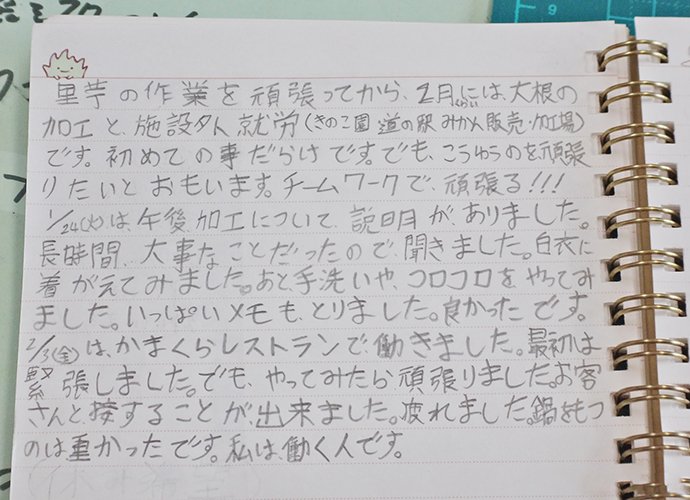 里芋の作業を頑張ってから、2月くらいには、大根の
加工と、施設外就労(きのこ園 道の駅 みかん販売・加工場)
です。初めての事だらけです。でも、こうゆうのを頑張
りたいとおもいます。チームワークで、頑張る!!!
1/24(火)は、午後、加工について、説明が、ありました。
長時間、大事なことだったので、聞きました。白衣に
着がえてみました。あと、手洗いや、コロコロをやってみ
ました。いっぱいメモも、とりました。良かったです。
2/3(金)は、かまくらレストランで働きました。最初は
緊張しました。でも、やってみたら頑張りました。お客
さんと、接することが、出来ました。疲れました。鍋をもつ
のは重かったです。私は、働く人です。